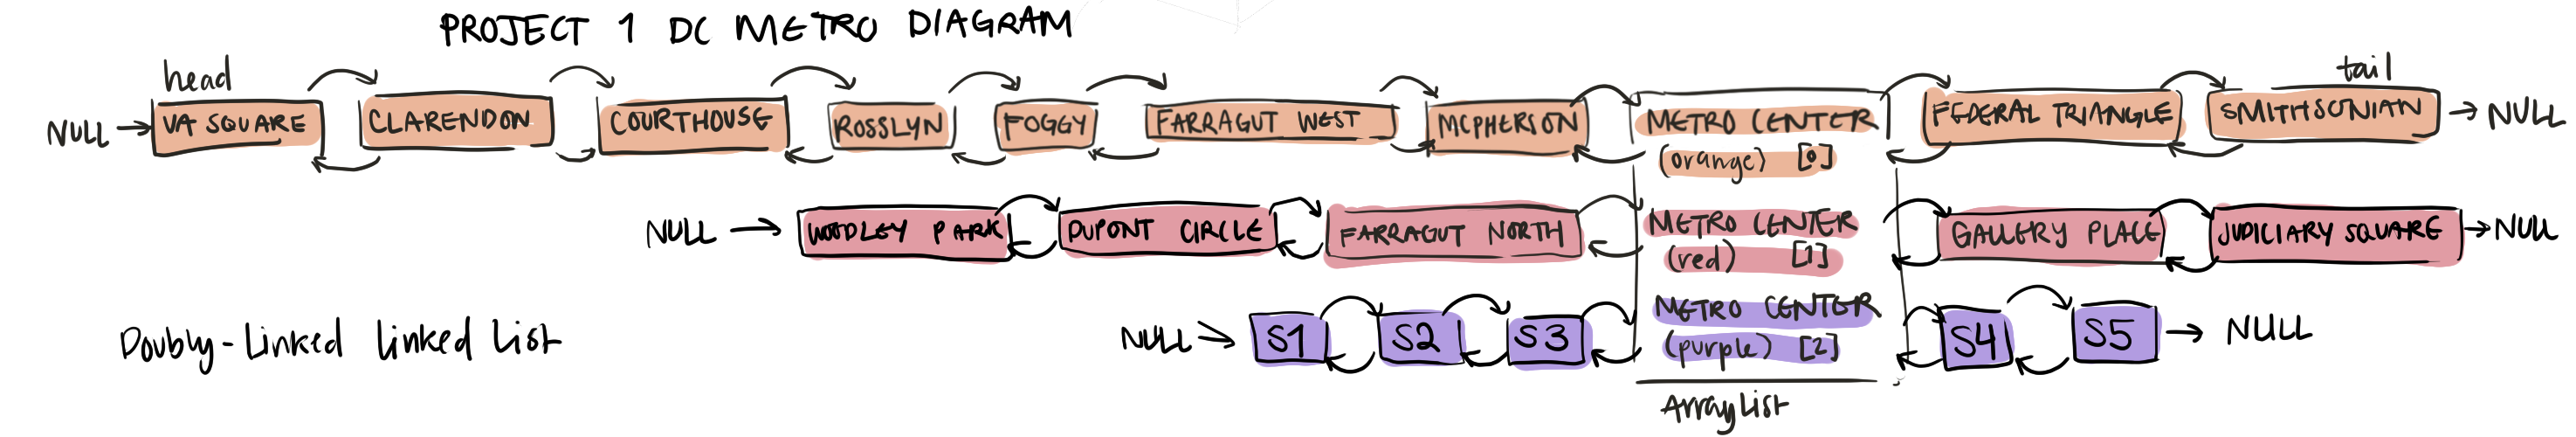 PROJECT 1 DC METRO DIAGRAM
head
tail
NULL VA SQUARE CLARENDON COURTHOUSE ROSSLYN FOGGY FARRAGUT WEST MCPHERSON METRO CENTER FEDERAL TRIANGLE SMITHSONIAN NULL
(orange) [0]
NULL WOODLEY PARK DUPONT CIRCLE FARRAGUT NORTH METRO CENTER GALLERY PLACE JUDICIARY SQUARE NULL
(red) [1]
METRO CENTER
Doubly-Linked Linked List NULL S1 S2 S3 (purple) [2] S4 S5 NULL
ArrayList